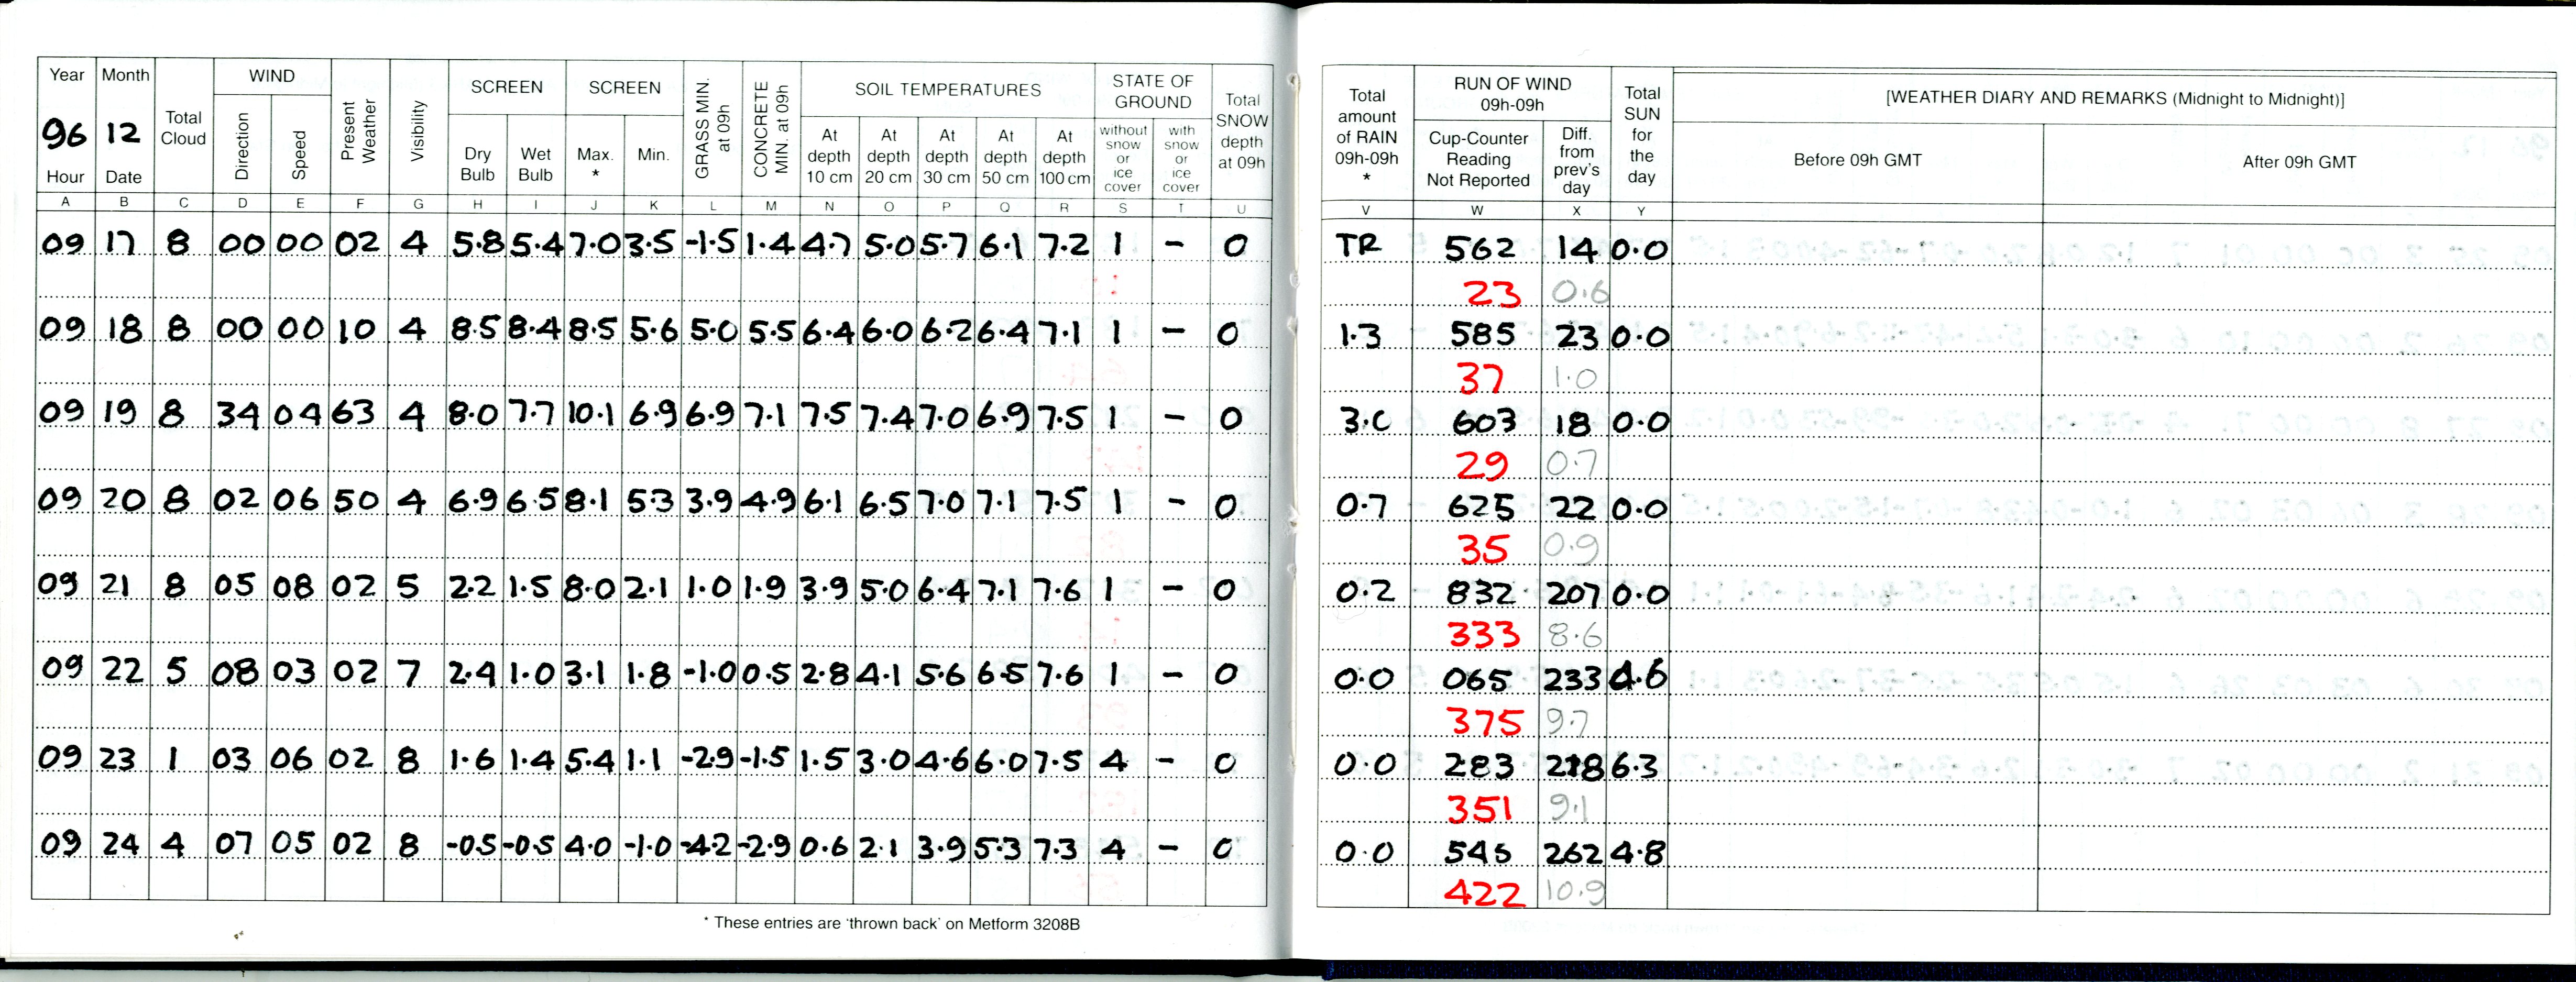 Year Month Total Cloud WIND Present Weather Visibility SCREEN SCREEN GRASS MIN. at 09h CONCRETE MIN. at 09h SOIL TEMPERATURES STATE OF GROUND Total SNOW depth at 09h
96 12 Direction Speed Dry Bulb Wet Bulb Max. * Min. At depth 10 cm At depth 20 cm At depth 30 cm At depth 50 cm At depth 100 cm without snow or ice cover with snow or ice cover
Hour Date
A B C D E F G H I J K L M N O P Q R S T U
09 17 8 00 00 02 4 5.8 5.4 7.0 3.5 -1.5 1.4 4.7 5.0 5.7 6.1 7.2 1 - 0
09 18 8 00 00 10 4 8.5 8.4 8.5 5.6 5.0 5.5 6.4 6.0 6.2 6.4 7.1 1 - 0
09 19 8 34 04 63 4 8.0 7.7 10.1 6.9 6.9 7.1 7.5 7.4 7.0 6.9 7.5 1 - 0
09 20 8 02 06 50 4 6.9 6.5 8.1 5.3 3.9 4.9 6.1 6.5 7.0 7.1 7.5 1 - 0
09 21 8 05 08 02 5 2.2 1.5 8.0 2.1 1.0 1.9 3.9 5.0 6.4 7.1 7.6 1 - 0
09 22 5 08 03 02 7 2.4 1.0 3.1 1.8 -1.0 0.5 2.8 4.1 5.6 6.5 7.6 1 - 0
09 23 1 03 06 02 8 1.6 1.4 5.4 1.1 -2.9 -1.5 1.5 3.0 4.6 6.0 7.5 4 - 0
09 24 4 07 05 02 8 -0.5 -0.5 4.0 -1.0 -4.2 -2.9 0.6 2.1 3.9 5.3 7.3 4 - 0
* These entries are 'thrown back' on Metform 3208B
Total amount of RAIN 09h-09h * RUN OF WIND 09h-09h Total SUN for the day [WEATHER DIARY AND REMARKS (Midnight to Midnight)]
Cup-Counter Reading Not Reported Diff. from prev's day Before 09h GMT After 09h GMT
V W X Y
TR 562 14 0.0
23 0.6
1.3 585 23 0.0
37 1.0
3.0 603 18 0.0
29 0.7
0.7 625 22 0.0
35 0.9
0.2 832 207 0.0
333 8.6
0.0 065 233 4.6
375 9.7
0.0 283 218 6.3
351 9.1
0.0 545 262 4.8
422 10.9